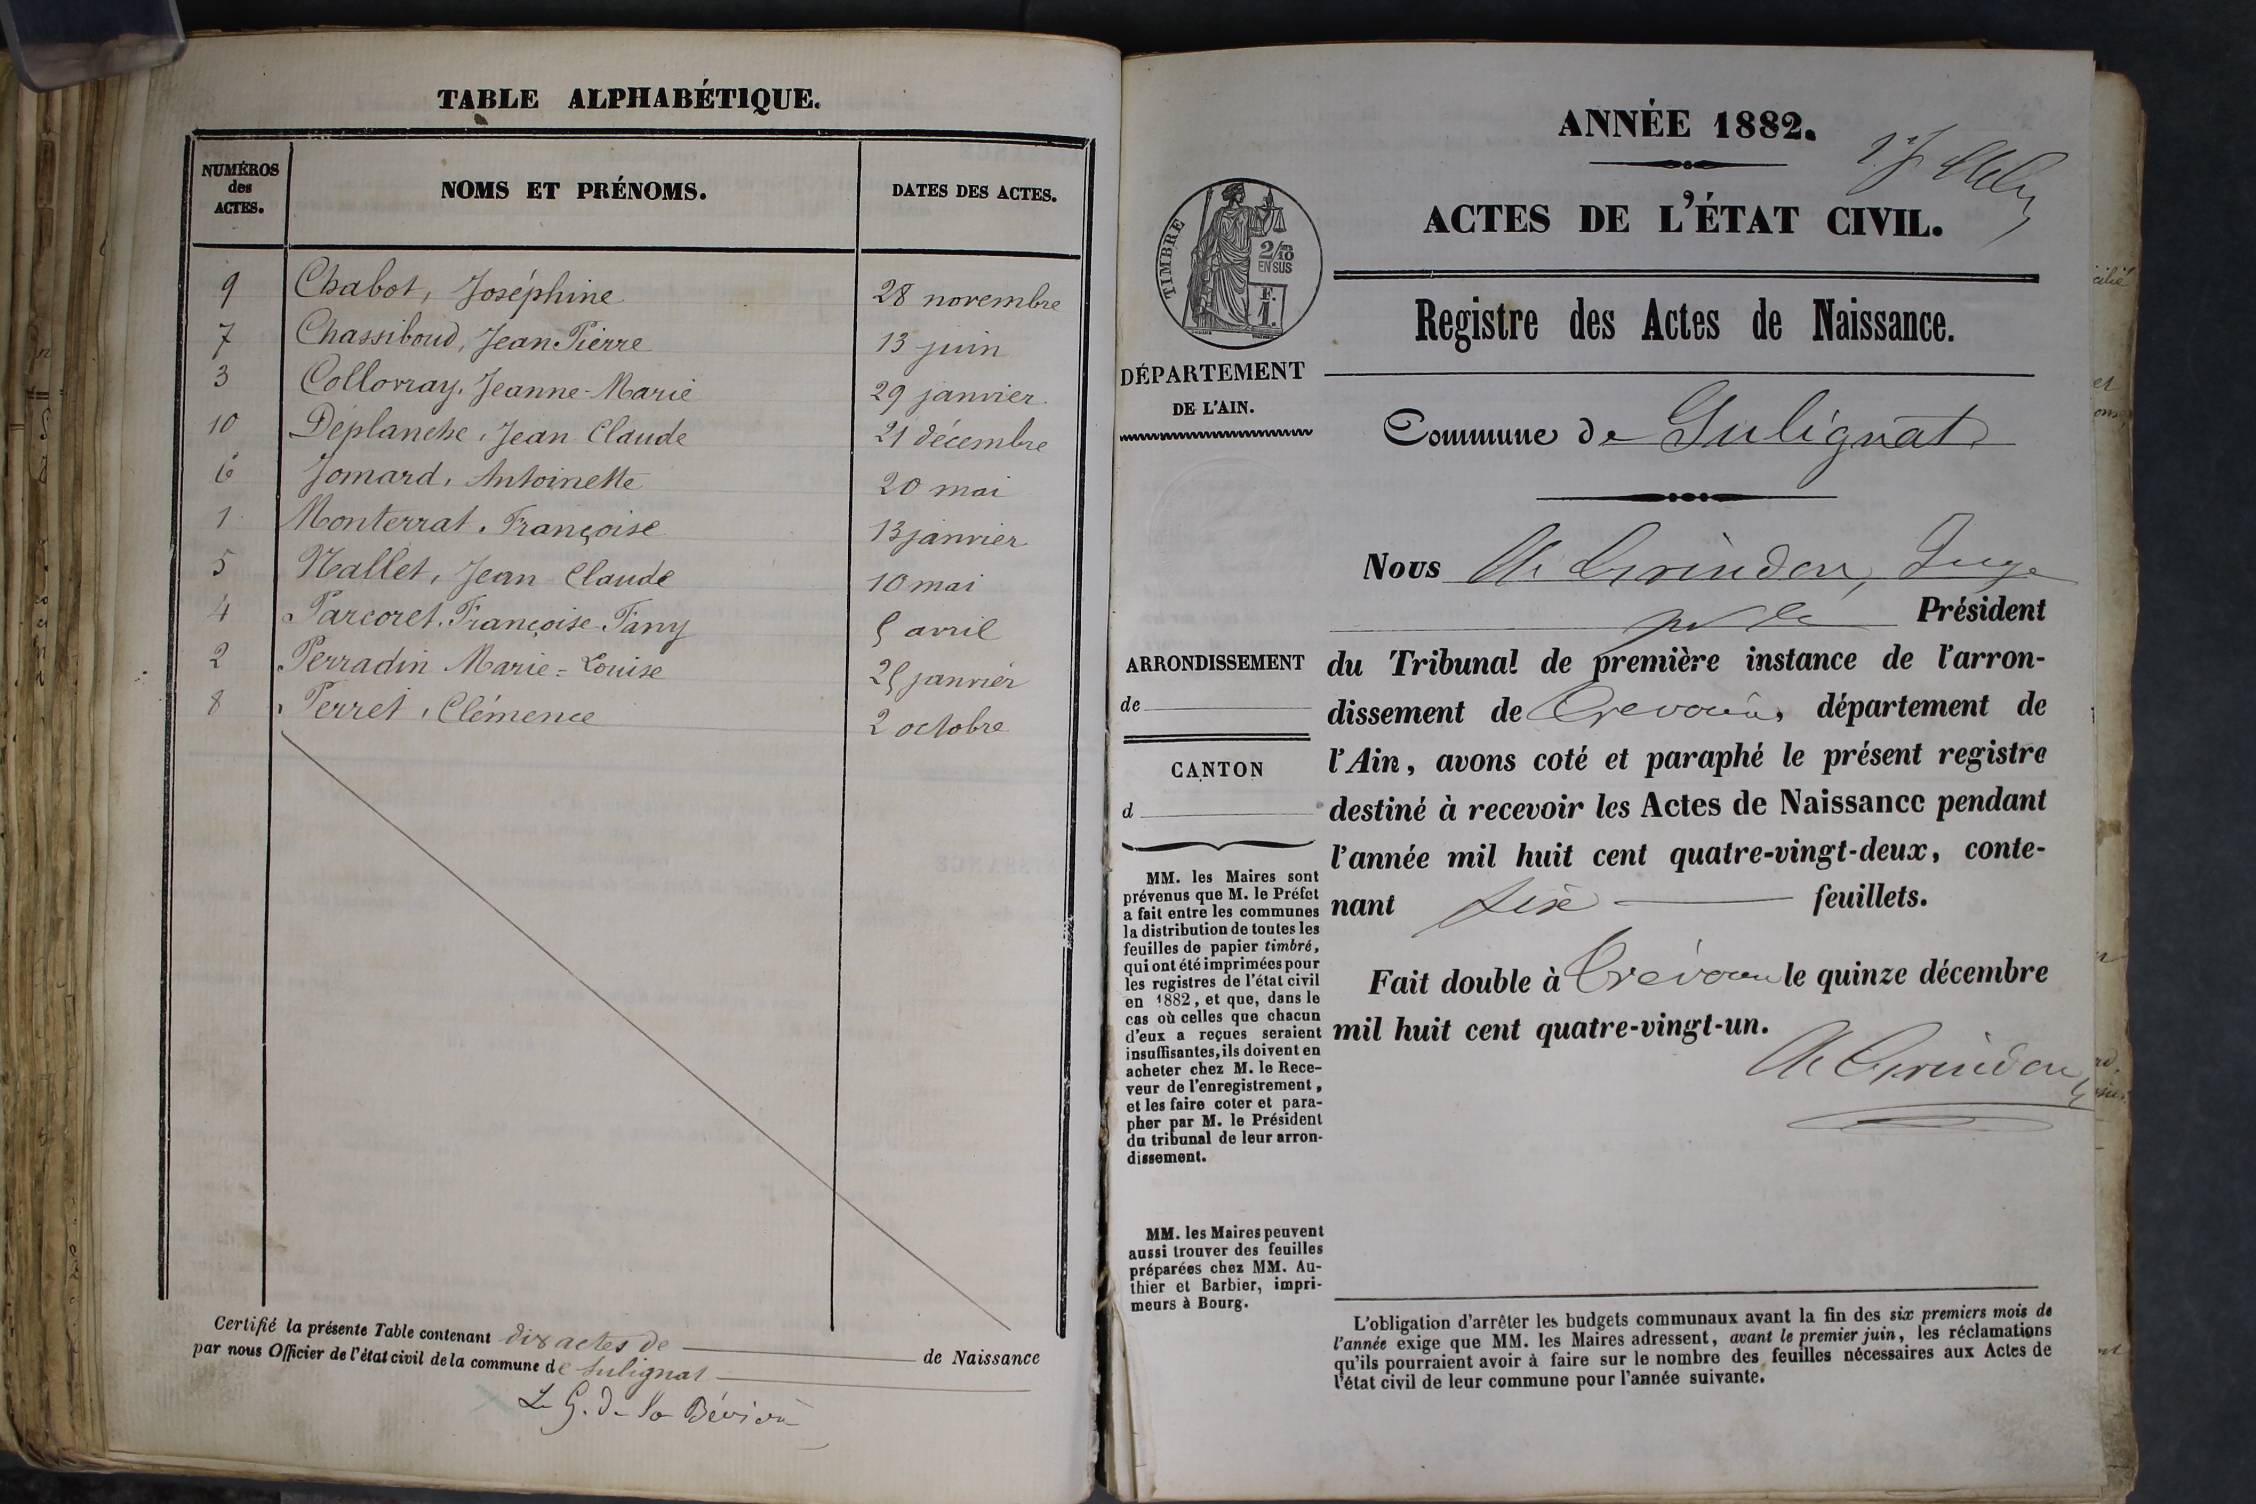 TABLE ALPHABÉTIQUE.
NUMÉROS des ACTES.
NOMS ET PRÉNOMS.
DATES DES ACTES.
9 Chabot, Joséphine 28 novembre
7 Chassiboud, Jean Pierre 13 juin
3 Collovray, Jeanne-Marie 29 janvier
10 Déplanche, Jean Claude 21 décembre
6 Jomard, Antoinette 20 mai
1 Monterrat, Françoise 13 janvier
5 Nallet, Jean Claude 10 mai
4 Parcoret, Françoise-Fany 5 avril
2 Perradin Marie-Louise 25 janvier
8 Perret, Clémence 2 octobre
Certifié la présente Table contenant dix actes de de Naissance
par nous Officier de l'état civil de la commune de Sulignat
ANNÉE 1882.
ACTES DE L'ÉTAT CIVIL.
TIMBRE
2/10
EN SUS
F.
1.
Registre des Actes de Naissance.
DÉPARTEMENT
DE L'AIN.
Commune de Sulignat
Nous Juge
Président
ARRONDISSEMENT
de
du Tribunal de première instance de l'arron-
dissement de Trévoux, département de
CANTON
d
l'Ain, avons coté et paraphé le présent registre
destiné à recevoir les Actes de Naissance pendant
l'année mil huit cent quatre-vingt-deux, conte-
nant six feuillets.
Fait double à Trévoux le quinze décembre
mil huit cent quatre-vingt-un.
MM. les Maires sont
prévenus que M. le Préfet
a fait entre les communes
la distribution de toutes les
feuilles de papier timbré,
qui ont été imprimées pour
les registres de l'état civil
en 1882, et que, dans le
cas où celles que chacun
d'eux a reçues seraient
insuffisantes, ils doivent en
acheter chez M. le Rece-
veur de l'enregistrement,
et les faire coter et para-
pher par M. le Président
du tribunal de leur arron-
dissement.
MM. les Maires peuvent
aussi trouver des feuilles
préparées chez MM. Au-
thier et Barbier, impri-
meurs à Bourg.
L'obligation d'arrêter les budgets communaux avant la fin des six premiers mois de
l'année exige que MM. les Maires adressent, avant le premier juin, les réclamations
qu'ils pourraient avoir à faire sur le nombre des feuilles nécessaires aux Actes de
l'état civil de leur commune pour l'année suivante.